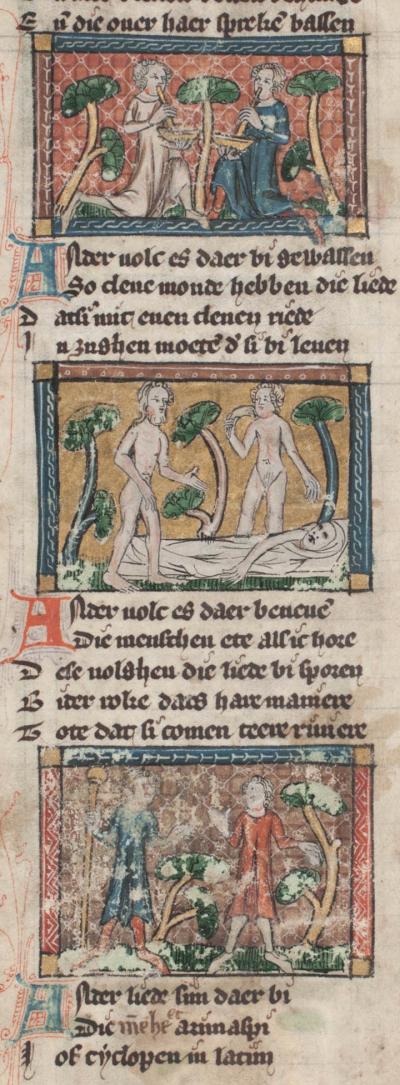 E ñ die ouer haer spreke bassen
Ander volc es daer bi gewassen
So clene monde hebben die liede
D atsi mit enen clenen riede
I n zughen moete d' si bi leuen
Ander volc es daer beneue
Die menschen ete als ic hore
D ese volghen die liede bi sporen
B i der roke dats hare maniere
T ote dat si comen teere riuiere
Ander liede sijn daer bi
Die mē het arimaspi
I of cyclopen in latijn